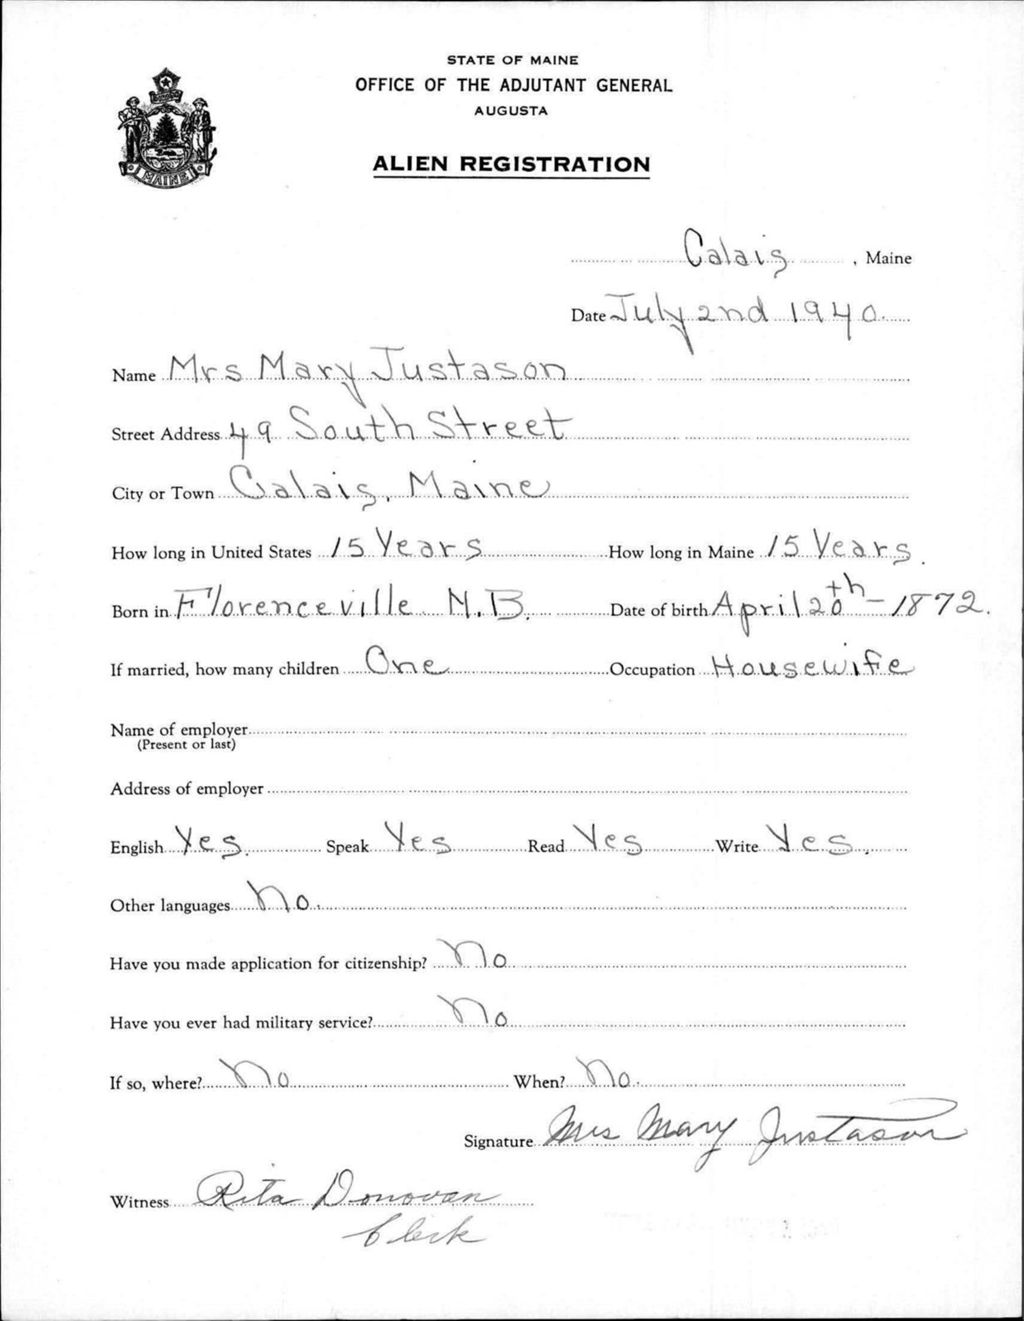 STATE OF MAINE
OFFICE OF THE ADJUTANT GENERAL
AUGUSTA
ALIEN REGISTRATION
MAINE
Calais, Maine
Date July 2nd 1940.
Name Mrs Mary Justason
Street Address 49 South Street
City or Town Calais, Maine
How long in United States 15 Years How long in Maine 15 Years.
Born in Florenceville N.B. Date of birth April 20th - 1872.
If married, how many children One Occupation Housewife
Name of employer
(Present or last)
Address of employer
English Yes. Speak Yes Read Yes Write Yes.
Other languages No.
Have you made application for citizenship? No
Have you ever had military service? No
If so, where? No When? No.
Signature Mrs Mary Justason
Witness Rita Donovan
Clerk